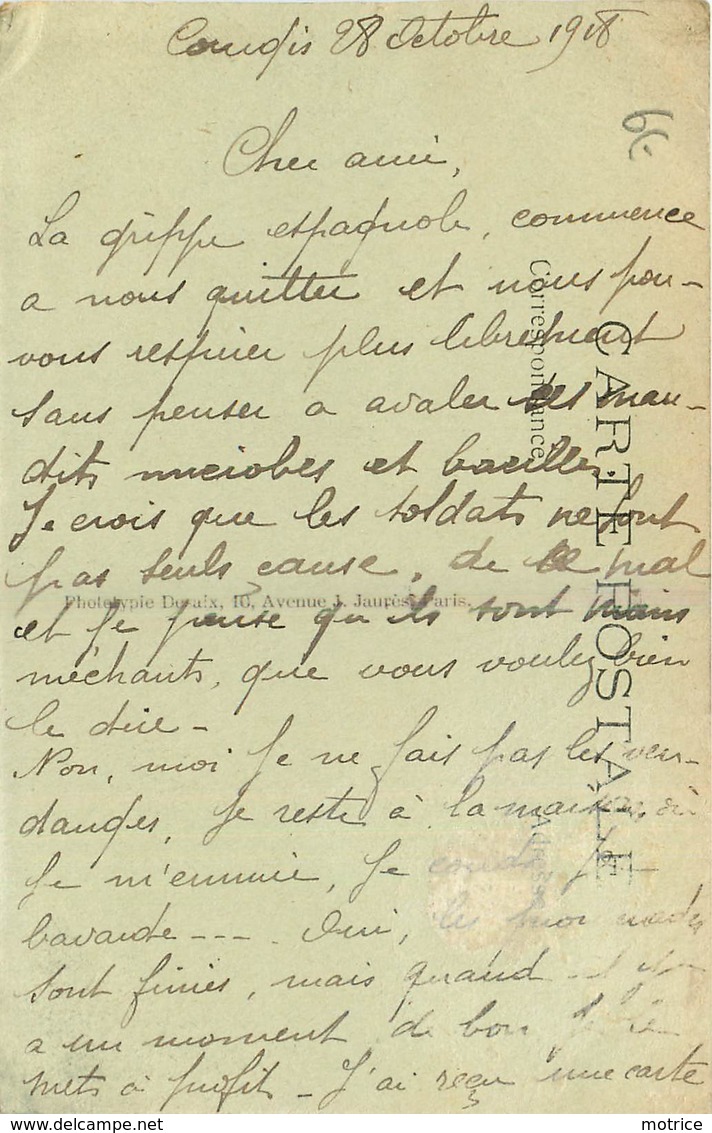 28 Octobre 1918
6€
Cher ami,
La grippe espagnole, commence
a nous quitter et nous pou-
vons respirer plus librement
sans penser a avaler des mau-
dits microbes et bacilles.
Je crois que les soldats ne sont
pas seuls cause, de ce mal
et je pense qu'ils sont moins
méchants, que vous voulez bien
le dire -
Non, moi je ne fais pas les ven-
danges, je reste à la maison, où
je m'ennuie, je couds, je
bavarde --- Oui, les
sont finies, mais quand il y en
a un moment de bon je le
mets à profit - J'ai reçu une carte
CARTE POSTALE
Correspondance
Adresse
Phototypie Desaix, 16, Avenue J. Jaurès, Paris.
delcampe.net
motrice